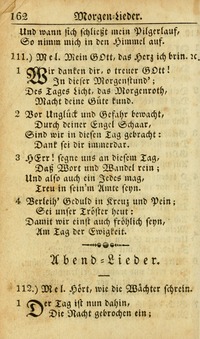 162 Morgen-Lieder.
Und wann sich schließt mein Pilgerlauf,
So nimm mich in den Himmel auf.
111.) Mel. Mein GOtt, das Herz ich brin. ꝛc.
1 Wir danken dir, o treuer GOtt!
In dieser Morgenstund';
Des Tages Licht, das Morgenroth,
Macht deine Güte kund.
2 Vor Unglück und Gefahr bewacht,
Durch deiner Engel Schaar,
Sind wir in diesen Tag gebracht:
Dank sei dir immerdar.
3 HErr! segne uns an diesem Tag,
Daß Wort und Wandel rein;
Und also auch ein Jedes mag,
Treu in sein'm Amte seyn.
4 Verleih' Geduld in Kreuz und Pein;
Sei unser Tröster heut:
Damit wir einst auch fröhlich seyn,
Am Tag der Ewigkeit.
Abend-Lieder.
112.) Mel. Hört, wie die Wächter schrein.
1 Der Tag ist nun dahin,
Die Nacht gebrochen ein;